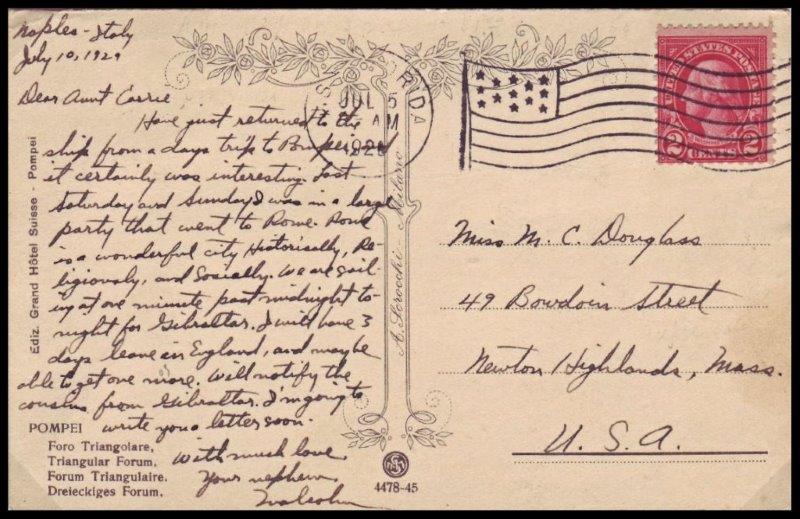 Naples - Italy
July 10, 1929
Dear Aunt Carrie
Have just returned to the
ship from a days trip to Pompei
it certainly was interesting. Last
Saturday and Sunday I was in a large
party that went to Rome. Rome
is a wonderful city Historically, Re-
ligiously, and Socially. We are sail-
ing at one minute past midnight to-
night for Gibraltar. I will have 3
days leave in England, and maybe
able to get one more. Will notify the
cousins from Gibraltar. I'm going to
write you a letter soon.
With much love
Your nephew,
Malcolm
POMPEI
Foro Triangolare,
Triangular Forum,
Forum Triangulaire.
Dreieckiges Forum.
Ediz. Grand Hôtel Suisse - Pompei
A. Scrocchi - Milano
4478-45
JUL 5
AM
UNITED STATES POSTAGE
2 CENTS 2
Miss M. C. Douglass
49 Bowdoin Street
Newton Highlands, Mass.
U. S. A.